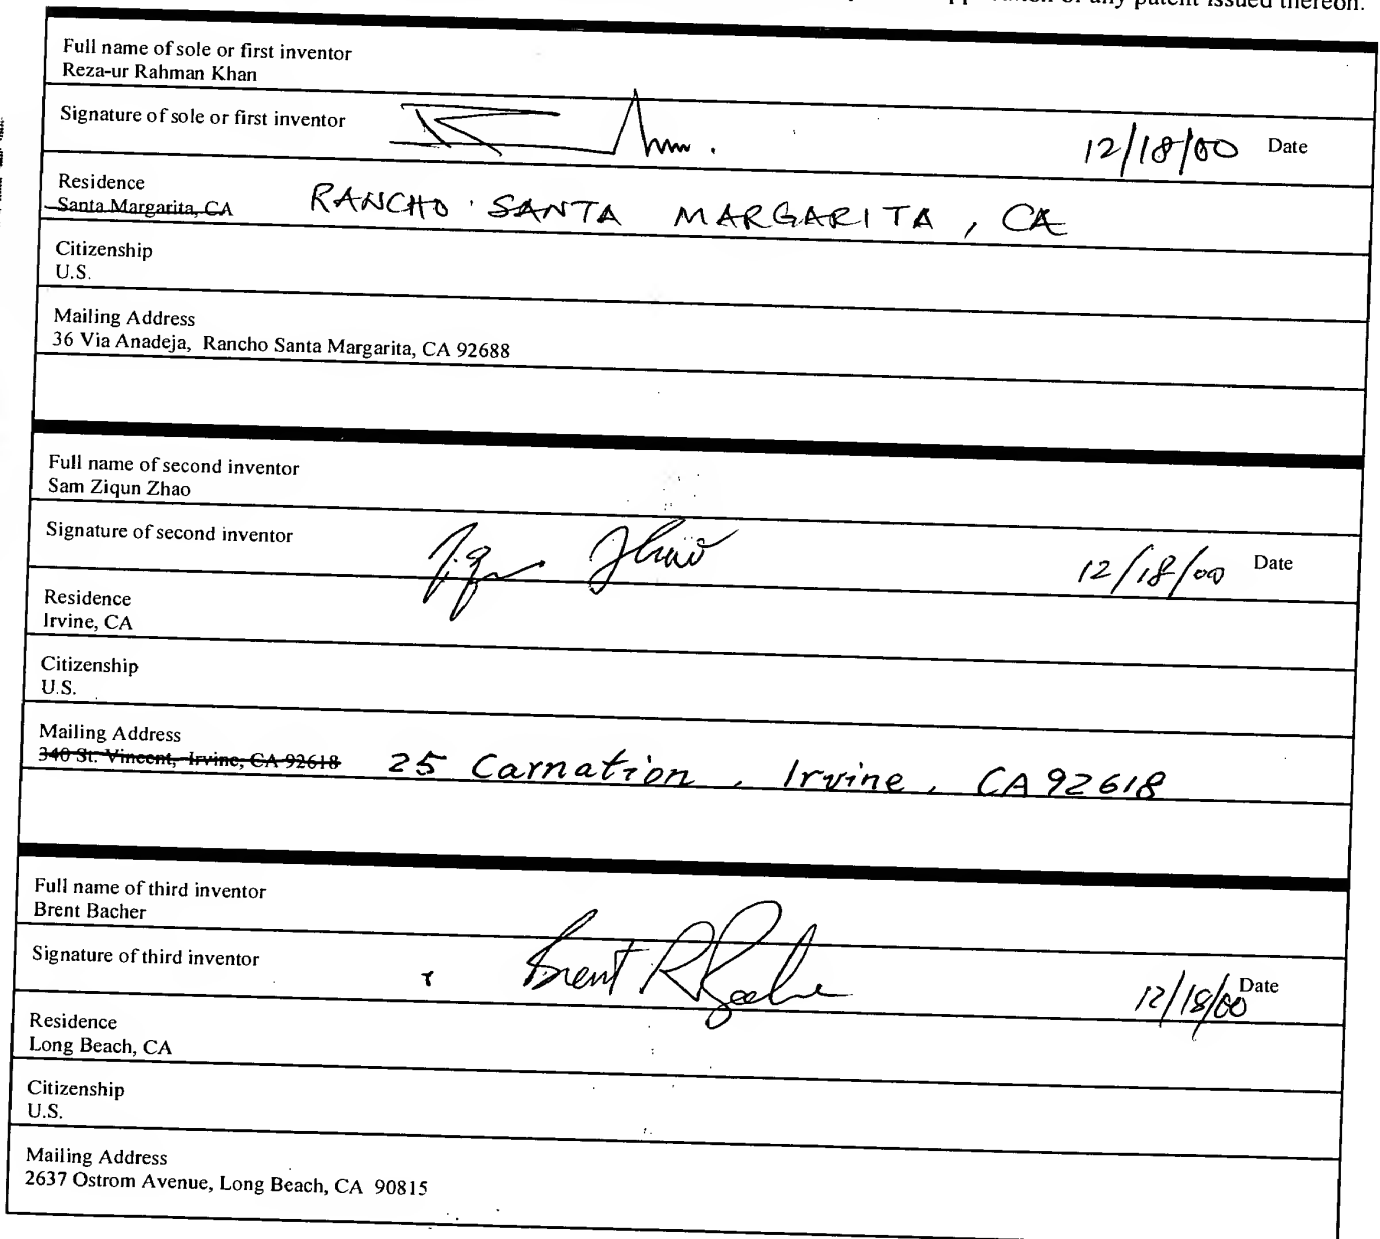 any patent issued thereon.
Full name of sole or first inventor
Reza-ur Rahman Khan
Signature of sole or first inventor
12/18/00 Date
Residence
Santa Margarita, CA RANCHO SANTA MARGARITA, CA
Citizenship
U.S.
Mailing Address
36 Via Anadeja, Rancho Santa Margarita, CA 92688
Full name of second inventor
Sam Ziqun Zhao
Signature of second inventor Zhao 12/18/00 Date
Residence
Irvine, CA
Citizenship
U.S.
Mailing Address
340 St. Vincent, Irvine, CA 92618 25 Carnation, Irvine, CA 92618
Full name of third inventor
Brent Bacher
Signature of third inventor Brent R Bacher 12/18/00 Date
Residence
Long Beach, CA
Citizenship
U.S.
Mailing Address
2637 Ostrom Avenue, Long Beach, CA 90815